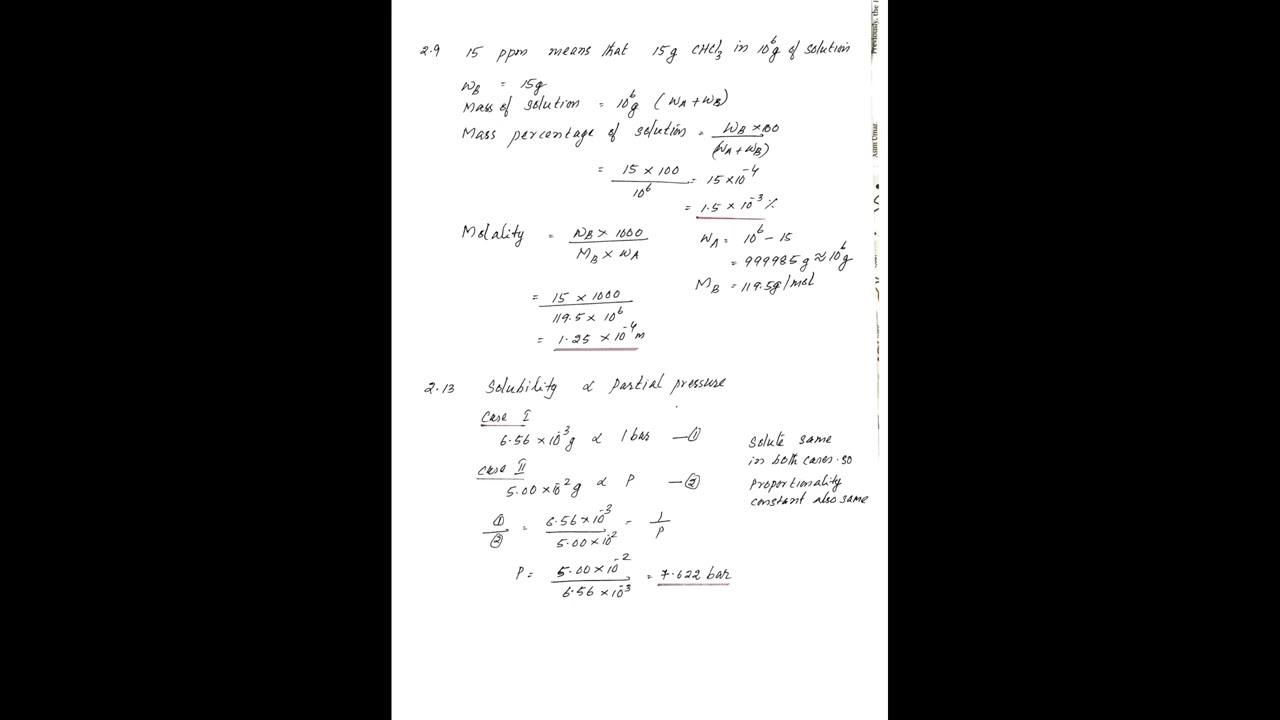 2.9 15 ppm means that 15g CHCl₃ in 10⁶g of solution
WB = 15g
Mass of solution = 10⁶g (WA + WB)
Mass percentage of solution = WB × 100 / (WA + WB)
= 15 × 100 / 10⁶ = 15 × 10⁻⁴
= 1.5 × 10⁻³ %
Molality = WB × 1000 / MB × WA
WA = 10⁶ − 15
= 999985 g ≈ 10⁶g
MB = 119.5g/mol
= 15 × 1000 / 119.5 × 10⁶
= 1.25 × 10⁻⁴ m
2.13 Solubility ∝ Partial pressure
Case I
6.56 × 10⁻³ g ∝ 1 bar —①
Case II
5.00 × 10⁻² g ∝ P —②
Solute same
in both cases. so
Proportionality
constant also same
① / ② = 6.56 × 10⁻³ / 5.00 × 10⁻² = 1 / P
P = 5.00 × 10⁻² / 6.56 × 10⁻³ = 7.622 bar
Previously, the
Asim Umar.